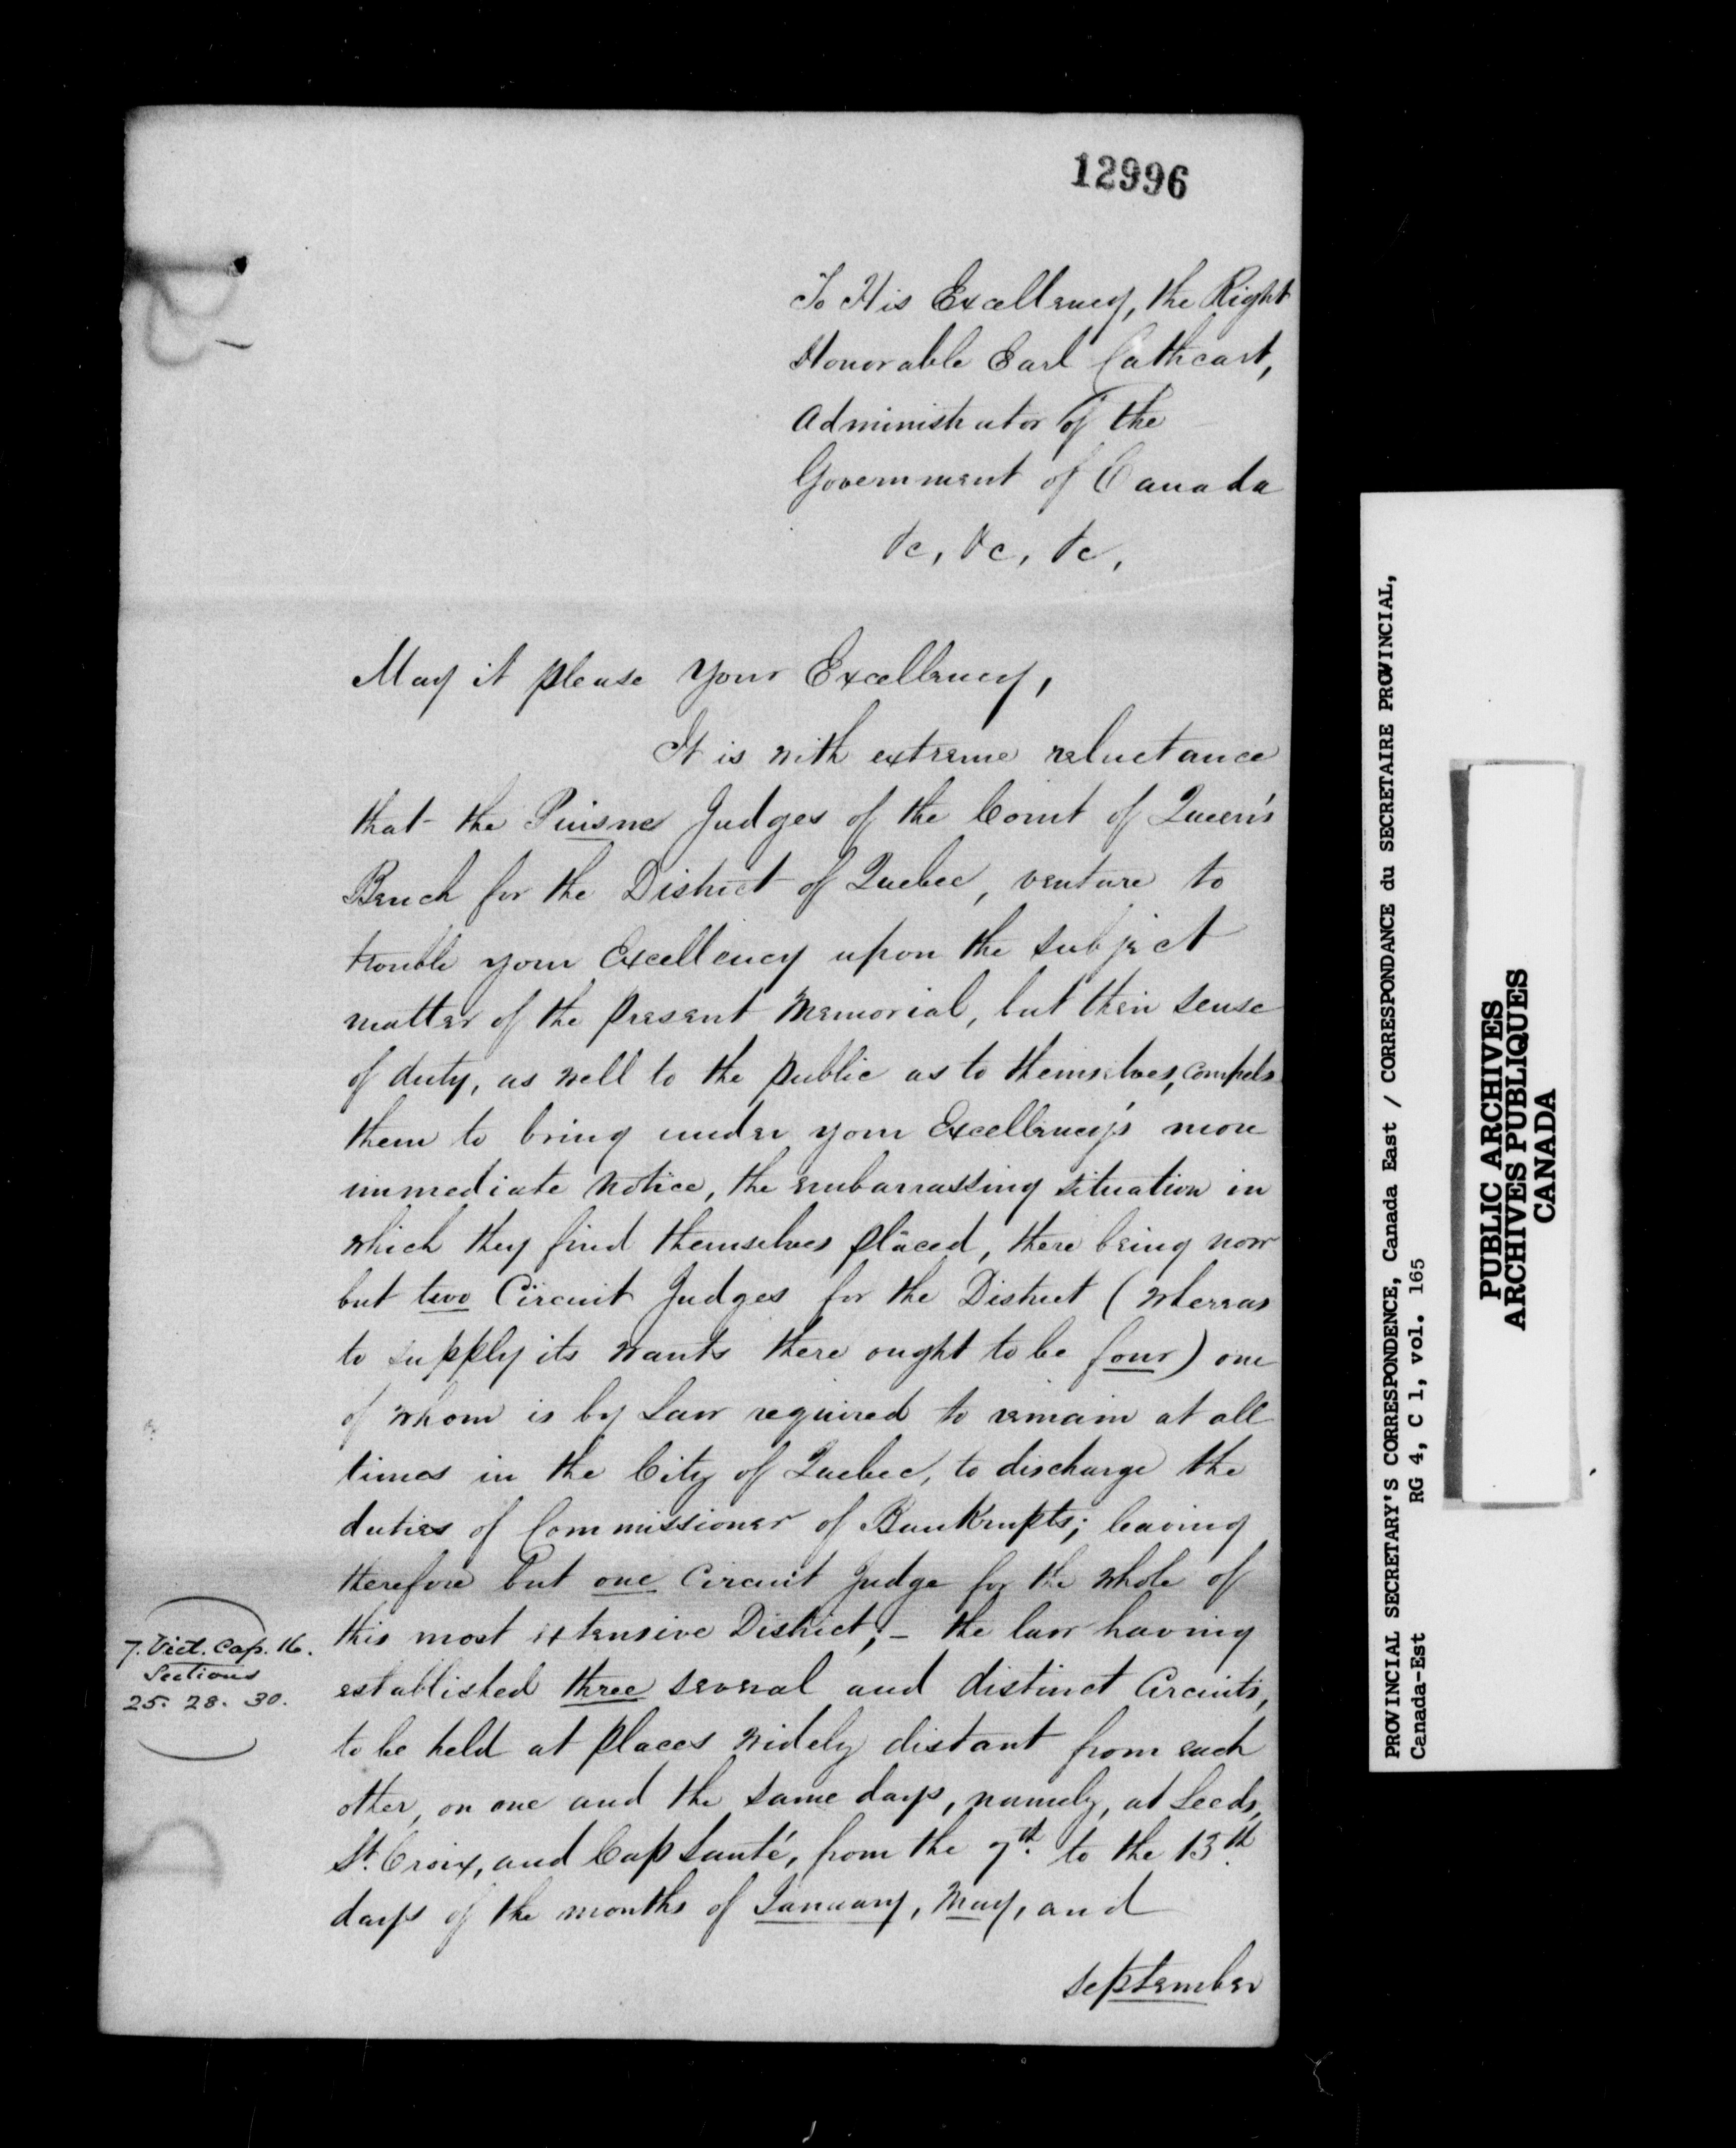 12996
To His Excellency, the Right
Honorable Earl Cathcart,
Administrator of the
Government of Canada
&c, &c, &c,
May it please Your Excellency,
It is with extreme reluctance
that the Puisne Judges of the Court of Queen's
Bench for the District of Quebec, venture to
trouble your Excellency upon the subject
matter of the present Memorial, but their sense
of duty, as well to the public as to themselves, compels
them to bring under your Excellency's more
immediate notice, the embarrassing situation in
which they find themselves placed, there being now
but two Circuit Judges for the District (whereas
to supply its wants there ought to be four) one
of whom is by Law required to remain at all
times in the City of Quebec, to discharge the
duties of Commissioner of Bankrupts; leaving
therefore but one Circuit Judge for the whole of
this most extensive District; – the law having
7. Vict. Cap. 16.
Sections
25. 28. 30.
established three several and distinct Circuits,
to be held at places widely distant from each
other, on one and the same days, namely, at Leeds,
St. Croix, and Cap Santé, from the 7th. to the 13th.
days of the months of January, May, and
September
PROVINCIAL SECRETARY'S CORRESPONDENCE, Canada East / CORRESPONDANCE du SECRETAIRE PROVINCIAL,
Canada-Est RG 4, C 1, vol. 165
PUBLIC ARCHIVES
ARCHIVES PUBLIQUES
CANADA